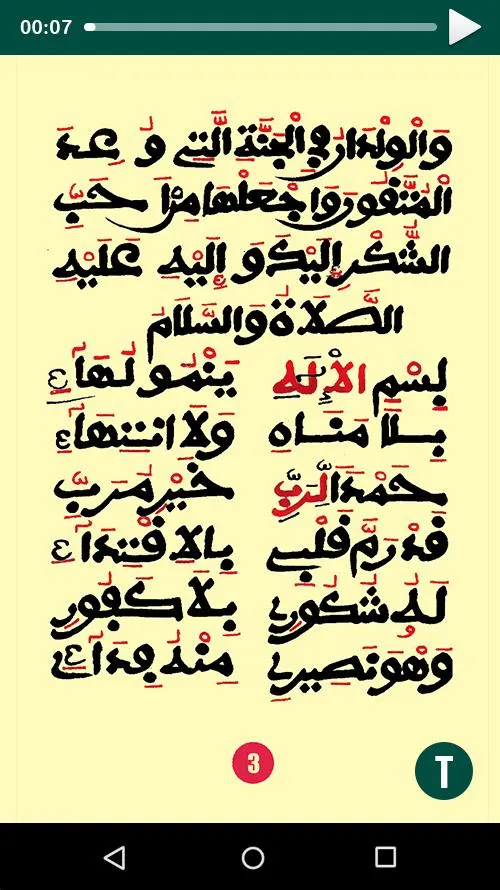 00:07
والولدان في الجنة التي وعد
المتقون واجعلها من احب
الشكر إليك و إليه عليه
الصلاة والسلام
بسم الإله ينمو لهاء
بلا مناه ولا انتهاء
حمدا لرب خير مرب
قد رم قلبي بالاقتداء
له شكوري بلا كفور
وهو نصيري منه فدائي
3
T